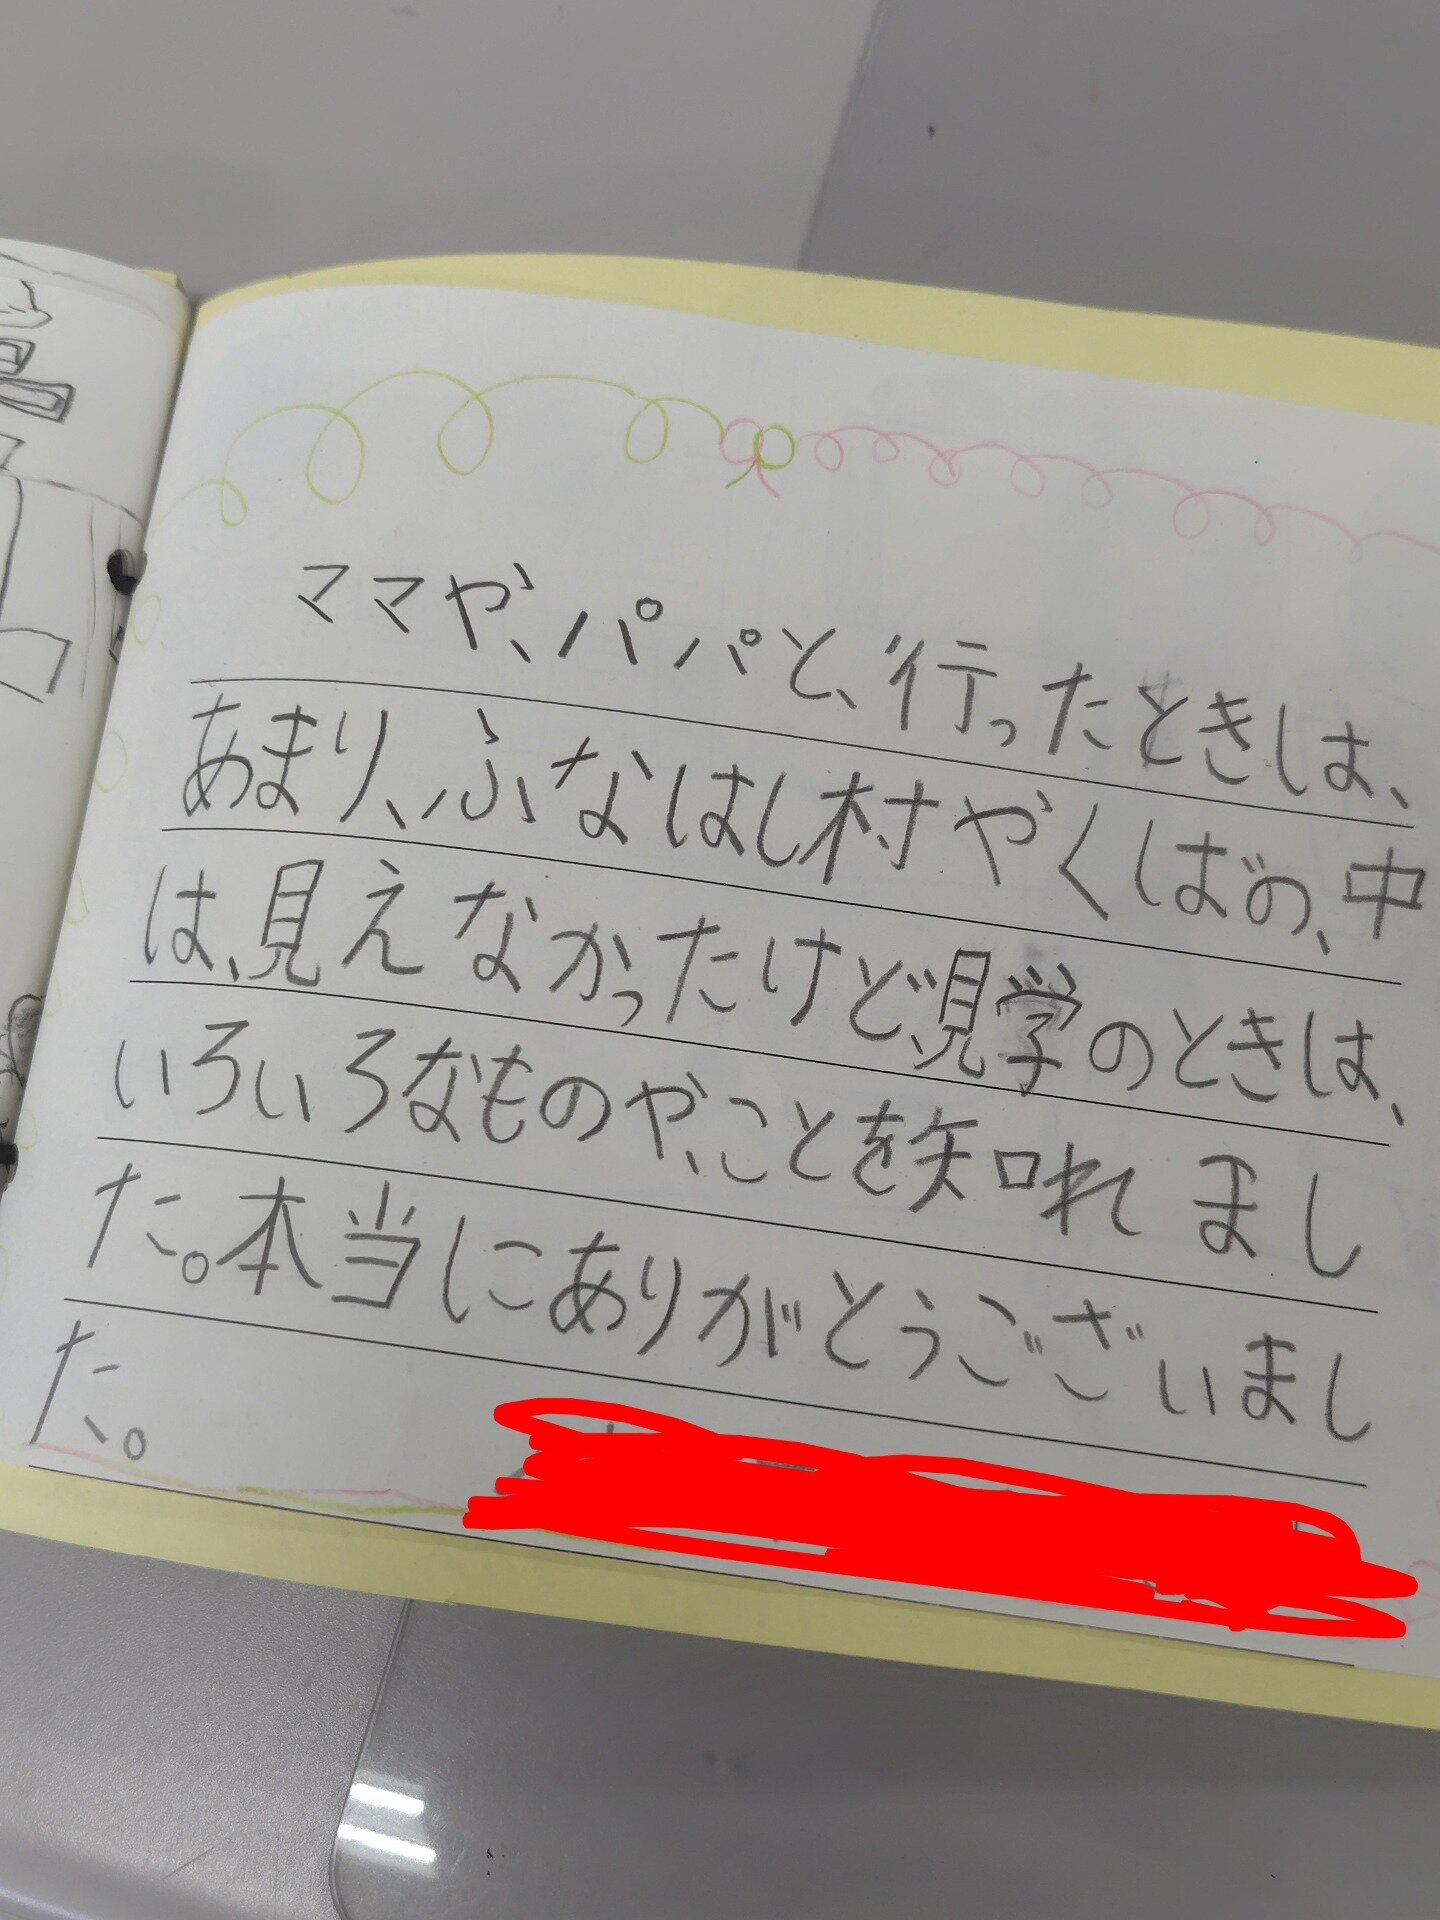 ママや、パパと、行ったときは、
あまり、ふなはし村やくばの、中
は、見えなかったけど、見学のときは、
いろいろなものや、ことを知れまし
た。本当にありがとうございまし
た。